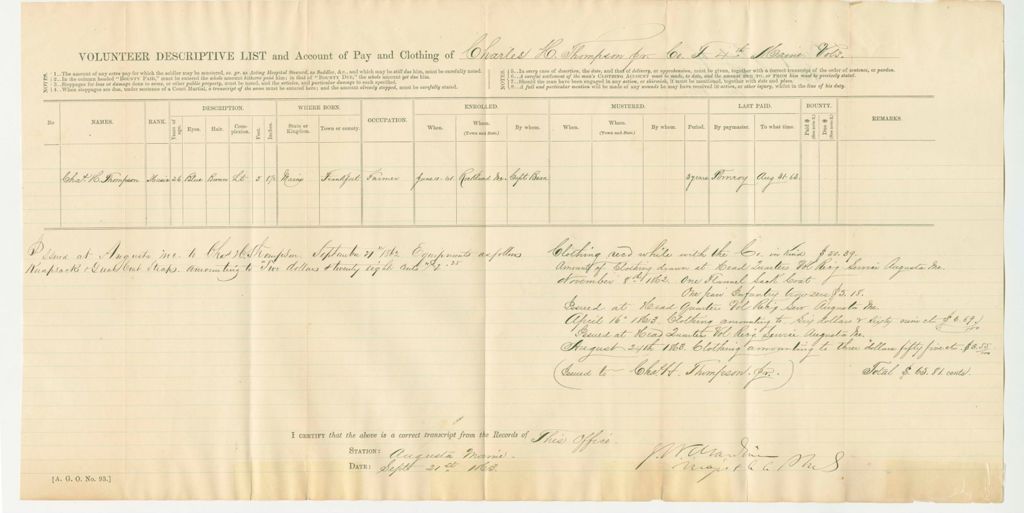 VOLUNTEER DESCRIPTIVE LIST and Account of Pay and Clothing of Charles H. Thompson Jr. Co. 4th Maine Vols.
NOTES. 1...The amount of any extra pay for which the soldier may be mustered, as Acting Hospital Steward, as Saddler, &c., and which may be still due him, must be carefully noted.
2...In the column headed "BOUNTY PAID," must be entered the whole amount hitherto paid him; in that of "BOUNTY DUE," the whole amount yet due him.
3...Stoppages for loss or damage done to arms, or other public property, must be noted, and the articles and particular damage to each specified.
4...When stoppages are due, under sentence of a Court Martial, a transcript of the same must be entered here; and the amount already stopped, must be carefully stated.
NOTES. 5...In every case of desertion, the date, and that of delivery, or apprehension, must be given, together with a correct transcript of the order of sentence, or pardon.
6...A careful settlement of the man's CLOTHING ACCOUNT must be made, to date, and the amount DUE TO, or FROM him must be precisely stated.
7...Should the man have been engaged in any action, or skirmish, it must be mentioned, together with date and place.
8...A full and particular mention will be made of any wounds he may have received in action, or other injury, whilst in the line of his duty.
No NAMES. RANK. DESCRIPTION. WHERE BORN. OCCUPATION. ENROLLED. MUSTERED. LAST PAID. BOUNTY. REMARKS.
Years of age. Eyes. Hair. Complexion. Feet. Inches. State or Kingdom. Town or county. When. Where. (Town and State.) By whom. When. Where. (Town and State.) By whom. Period. By paymaster. To what time. Paid $ (See note 2.) Due $ (See note 2.)
Chas. H. Thompson Music 26 Blue Brown Lt 5 Maine Frankfort Farmer June 10. 61 Rockland Me. Capt. Bean 3 years Pomroy Aug 31. 63
Issued at Augusta Me. to Chas H. Thompson. September 21st 1862 Equipments as follows
Knapsacks & Great Coat Straps. amounting to Two dollars & twenty eight cents
Clothing recd while with the Co. in kind $ 50.39.
Amount of Clothing drawn at Head Quarters Vol Recg Service Augusta Me.
November 8th 1862. One Flannel Sack Coat
One pair Infantry trowsers $3.18.
Issued at Head Quarters Vol Recg Serv Augusta Me.
April 16th 1863. Clothing amounting to Six dollars & sixty nine cts $ 6.69
Issued at Head Quarters Vol Recg Service Augusta Me.
August 24th 1863. Clothing amounting to three dollars fifty five cts. $3.55
(Issued to Chas H. Thompson. Jr.) Total $ 63.81 cents.
I CERTIFY that the above is a correct transcript from the Records of This Office.
STATION: Augusta Maine.
DATE: Sept 21st 1863.
[A. G. O. No. 93.]